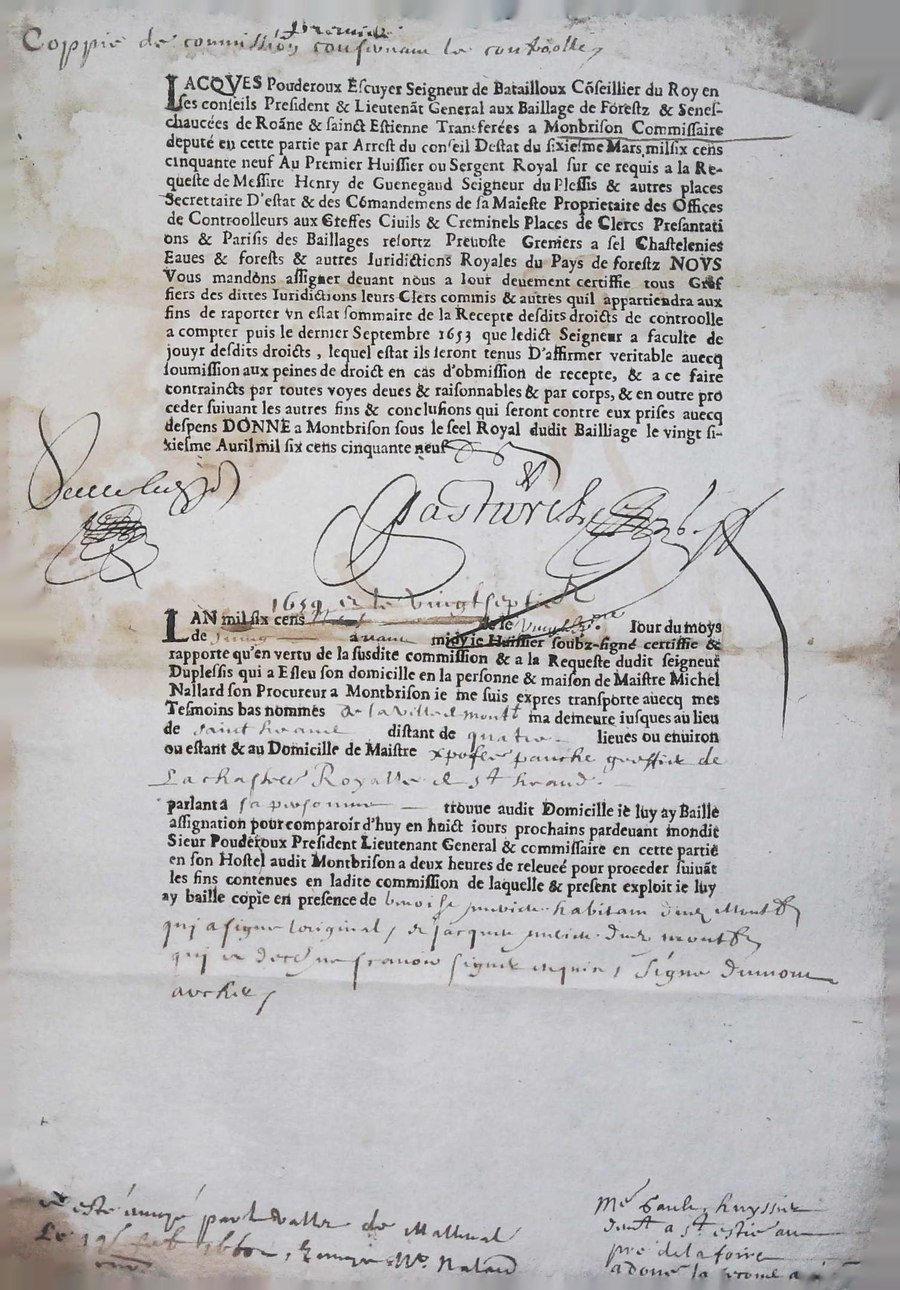 premiere
Coppie de commission concernant le controolle
LACQVES Pouderoux Escuyer Seigneur de Batailloux Cõseillier du Roy en
ses conseils President & Lieutenãt General aux Baillage de Forestz & Senes-
chaucées de Roãne & sainct Estienne Transferées a Monbrison Commissaire
deputé en cette partie par Arrest du conseil Destat du sixiesme Mars milsix cens
cinquante neuf Au Premier Huissier ou Sergent Royal sur ce requis a la Re-
queste de Messire Henry de Guenegaud Seigneur du Plessis & autres places
Secrettaire D'estat & des Cõmandemens de sa Maieste Proprietaire des Offices
de Controolleurs aux Greffes Ciuils & Creminels Places de Clercs Presantati
ons & Parisis des Baillages resortz Preuoste Greniers a sel Chastelenies
Eaues & forests & autres Iuridictions Royales du Pays de forestz NOVS
Vous mandõns assigner deuant nous a Iour deuement certiffie tous Gref
fiers des dittes Iuridictions leurs Clers commis & autres quil appartiendra aux
fins de raporter vn estat sommaire de la Recepte desdits droicts de controolle
a compter puis le dernier Septembre 1653 que ledict Seigneur a faculte de
jouyr desdits droicts , lequel estat ils seront tenus D'affirmer veritable auecq
soumission aux peines de droict en cas d'obmission de recepte, & a ce faire
contraincts par toutes voyes deues & raisonnables & par corps, & en outre pro
ceder suiuant les autres fins & conclusions qui seront contre eux prises auecq
despens DONNE a Montbrison sous le seel Royal dudit Bailliage le vingt si-
xiesme Auril mil six cens cinquante neuf
Pasturel
1659 et le vingt septie
LAN mil six cens de le Iour du moys
de Juing auant midy ie Huissier soubz-signé certiffie &
rapporte qu'en vertu de la susdite commission & a la Requeste dudit seigneur
Duplessis qui a Esleu son domicille en la personne & maison de Maistre Michel
Nallard son Procureur a Montbrison ie me suis expres transporte auecq mes
Tesmoins bas nommés de la ville de montb ma demeure iusques au lieu
de saint heand distant de quatre lieues ou enuiron
ou estant & au Domicille de Maistre xpofle panche greffier de
La chastel Royalle de st heand
parlant à sa personne trouue audit Domicille ie luy ay Baille
assignation pour comparoir d'huy en huict iours prochains pardeuant mondit
Sieur Pouderoux President Lieutenant General & commissaire en cette partie
en son Hostel audit Montbrison a deux heures de releueé pour proceder suiuãt
les fins contenues en ladite commission de laquelle & present exploit ie luy
ay baille copie en presence de benoist habitant dud Montb
qui a signe loriginal, & jacques dud montb
qui ne signer enquis, signe dumont
a esté par de
Le 19 feb 1660, Mr Nalard
me huyssier
a st estie au
pre de la foire
a donné la a